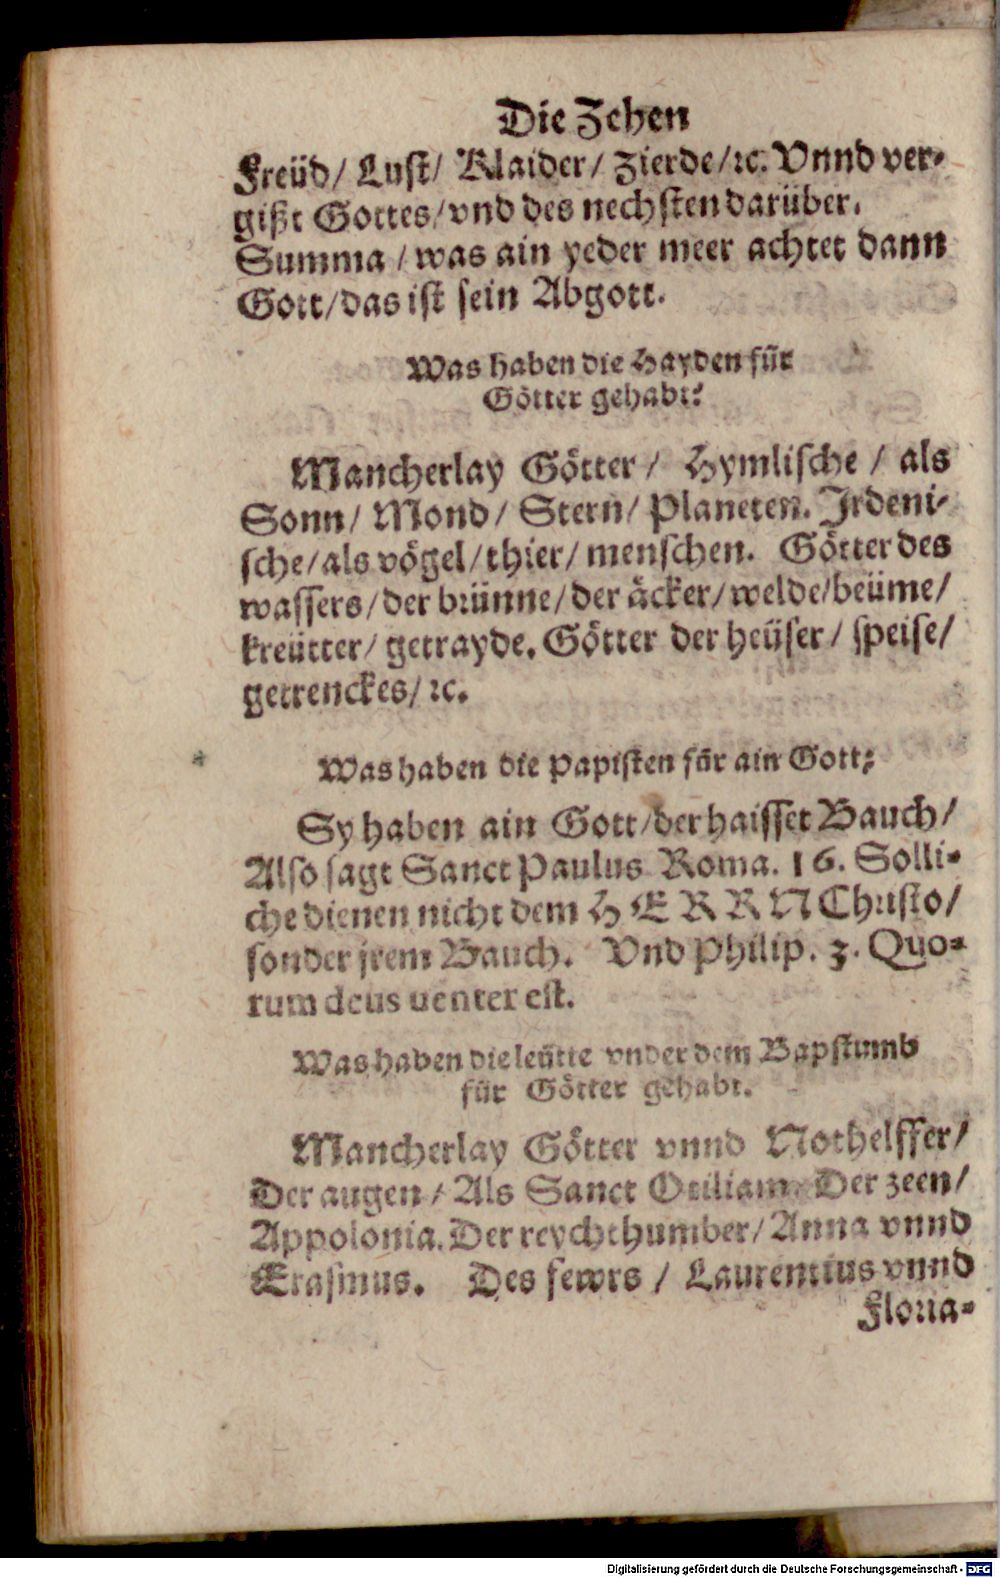 Die Zehen
Freüd/ Lust/ Klaider/ zierde/ ꝛc. Vnnd ver-
gißt Gottes/ vnd des nechsten darüber.
Summa / was ain yeder meer achtet dann
Gott/ das ist sein Abgott.
Was haben die Hayden für
Götter gehabt?
Mancherlay Götter / Hymlische / als
Sonn/ Mond/ Stern/ Planeten. Jrdeni-
sche/ als vögel/ thier/ menschen. Götter des
wassers/ der brünne/ der äcker/ welde/ beüme/
kreütter/ getrayde. Götter der heüser/ speise/
getrenckes/ ꝛc.
Was haben die Papisten für ain Gott?
Sy haben ain Gott/ der haisset Bauch/
Also sagt Sanct Paulus Roma. 16. Solli-
che dienen nicht dem HERRN Christo/
sonder jrem Bauch. Vnd Philip. 3. Quo-
rum deus uenter est.
Was haben die leütte vnder dem Bapstumb
für Götter gehabt.
Mancherlay Götter vnnd Nothelffer/
Der augen / Als Sanct Otiliam. Der zeen/
Appolonia. Der reychthumber/ Anna vnnd
Erasmus. Des fewrs / Laurentius vnnd
Floria-
Digitalisierung gefördert durch die Deutsche Forschungsgemeinschaft - DFG